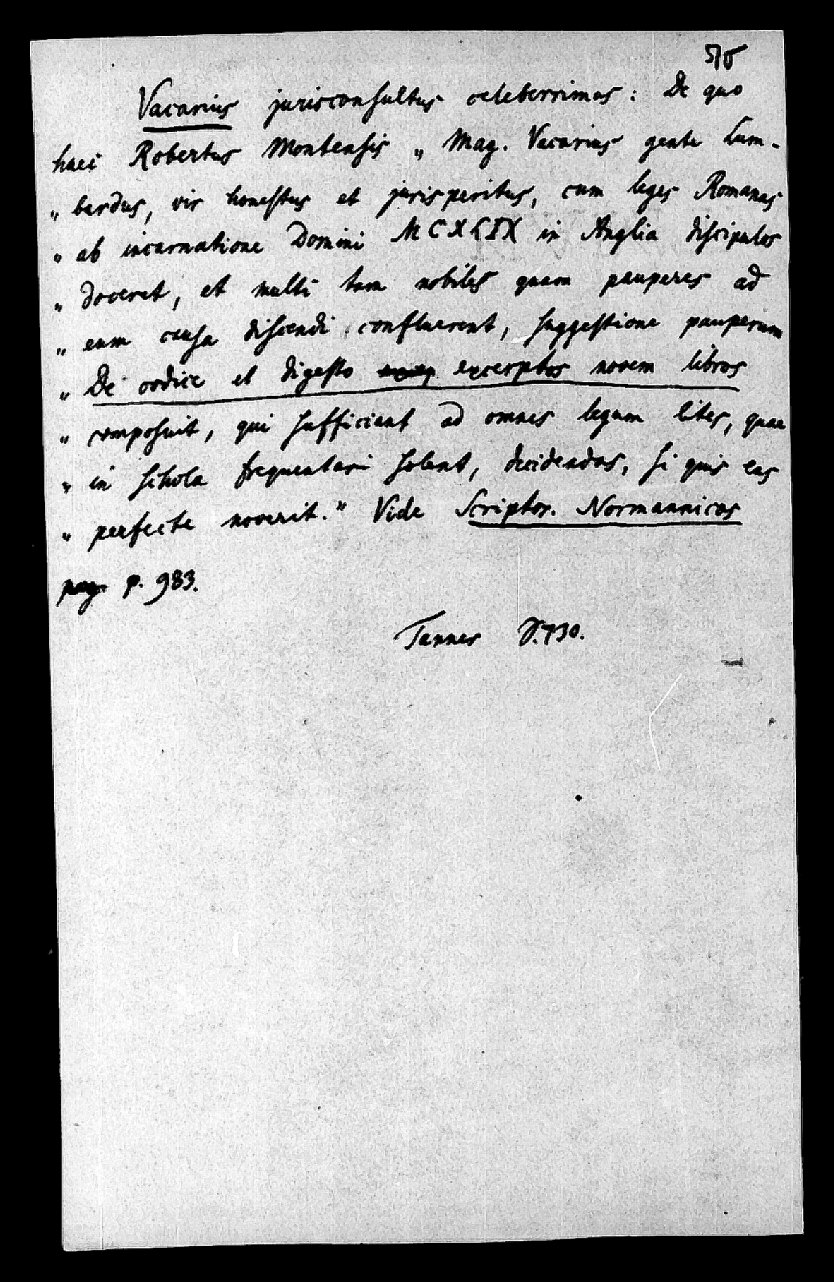 Vacarius jurisconsultus celeberrimus: De quo
haec Robertus Montensis „ Mag. Vacarius gente Lum-
„ bardus, vir honestus et jurisperitus, cum leges Romanas
„ ab incarnatione Domini MCXLIX in Anglia discipulos
„ doceret, et multi tam nobiles quam pauperes ad
„ eum causa discendi confluerent, suggestione pauperum
„ De codice et digesto excerptos novem libros
„ composuit, qui sufficiant ad omnes legum lites, quae
„ in schola frequentari solent, decidendas, si quis eas
„ perfecte noverit." Vide Scriptor. Normannicos
pag. p. 983.
Tanner S. 730.